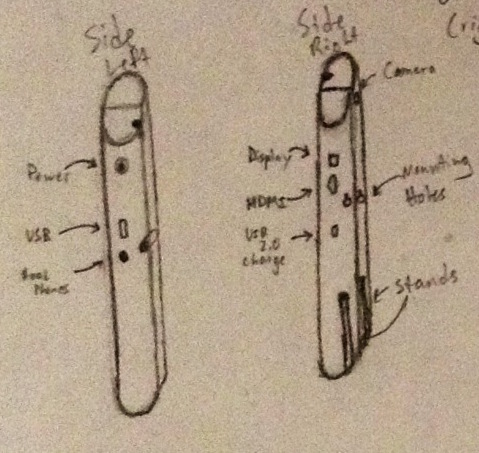 Side
Left
Power
USB
Phones
Side
Right
Camera
Display
HDMI
USB
2.0
charge
Mounting
Holes
Stands